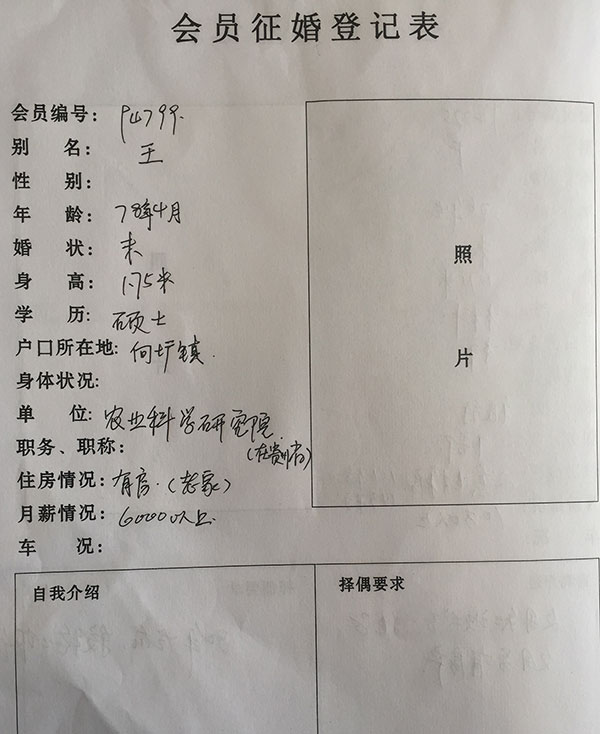 会员征婚登记表
会员编号：
别 名：王
性 别：
年 龄：78年4月
婚 状：未
身 高：1.75米
学 历：硕士
户口所在地：何圩镇
身体状况：
单 位：农业科学研究院
(在贵州省)
职务、职称：
住房情况：有房.(老家)
月薪情况：6000以上
车 况：
照
片
自我介绍
择偶要求